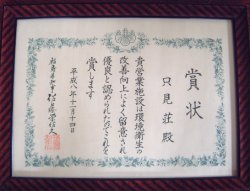 賞状
只見荘殿
貴営業施設は環境衛生の
改善向上によく留意され
優良と認められたのでこれを
賞します
平成八年十一月十四日
福島県知事 佐藤栄佐久